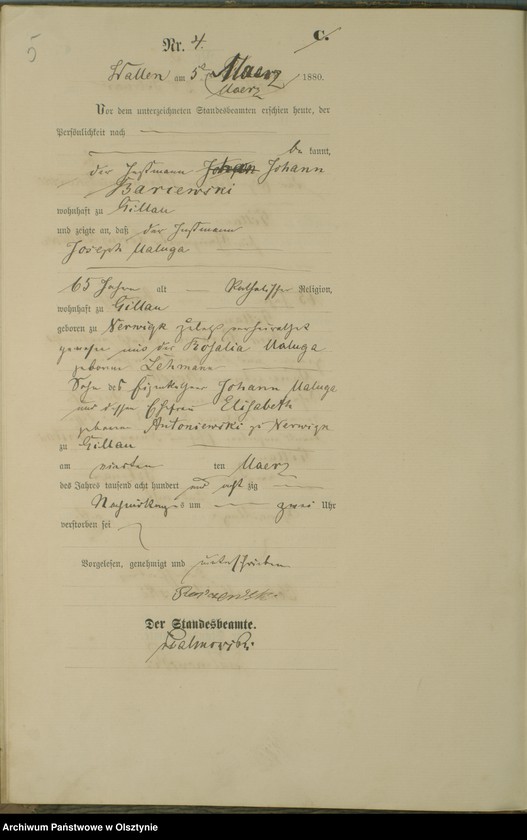 5
C.
Nr. 4.
Wallen am 5ten Maerz 1880.
Maerz
Vor dem unterzeichneten Standesbeamten erschien heute, der
Persönlichkeit nach
be kannt,
der Instmann Johann
Barcewski
wohnhaft zu Gillau
und zeigte an, daß der Instmann
Joseph Maluga
65 Jahre alt Katholischer Religion,
wohnhaft zu Gillau
geboren zu Nerwigk zuletzt verheirathet
gewesen mit der Rosalia Maluga
geborene Lehmann
Sohn des Eigenkäthner Johann Maluga
und dessen Ehefrau Elisabeth
geborene Antoniewski zu Nerwigk
zu Gillau
am vierten ten Maerz
des Jahres tausend acht hundert und acht zig
Nachmittags um zwei Uhr
verstorben sei
Vorgelesen, genehmigt und unterschrieben
Der Standesbeamte.
Archiwum Państwowe w Olsztynie